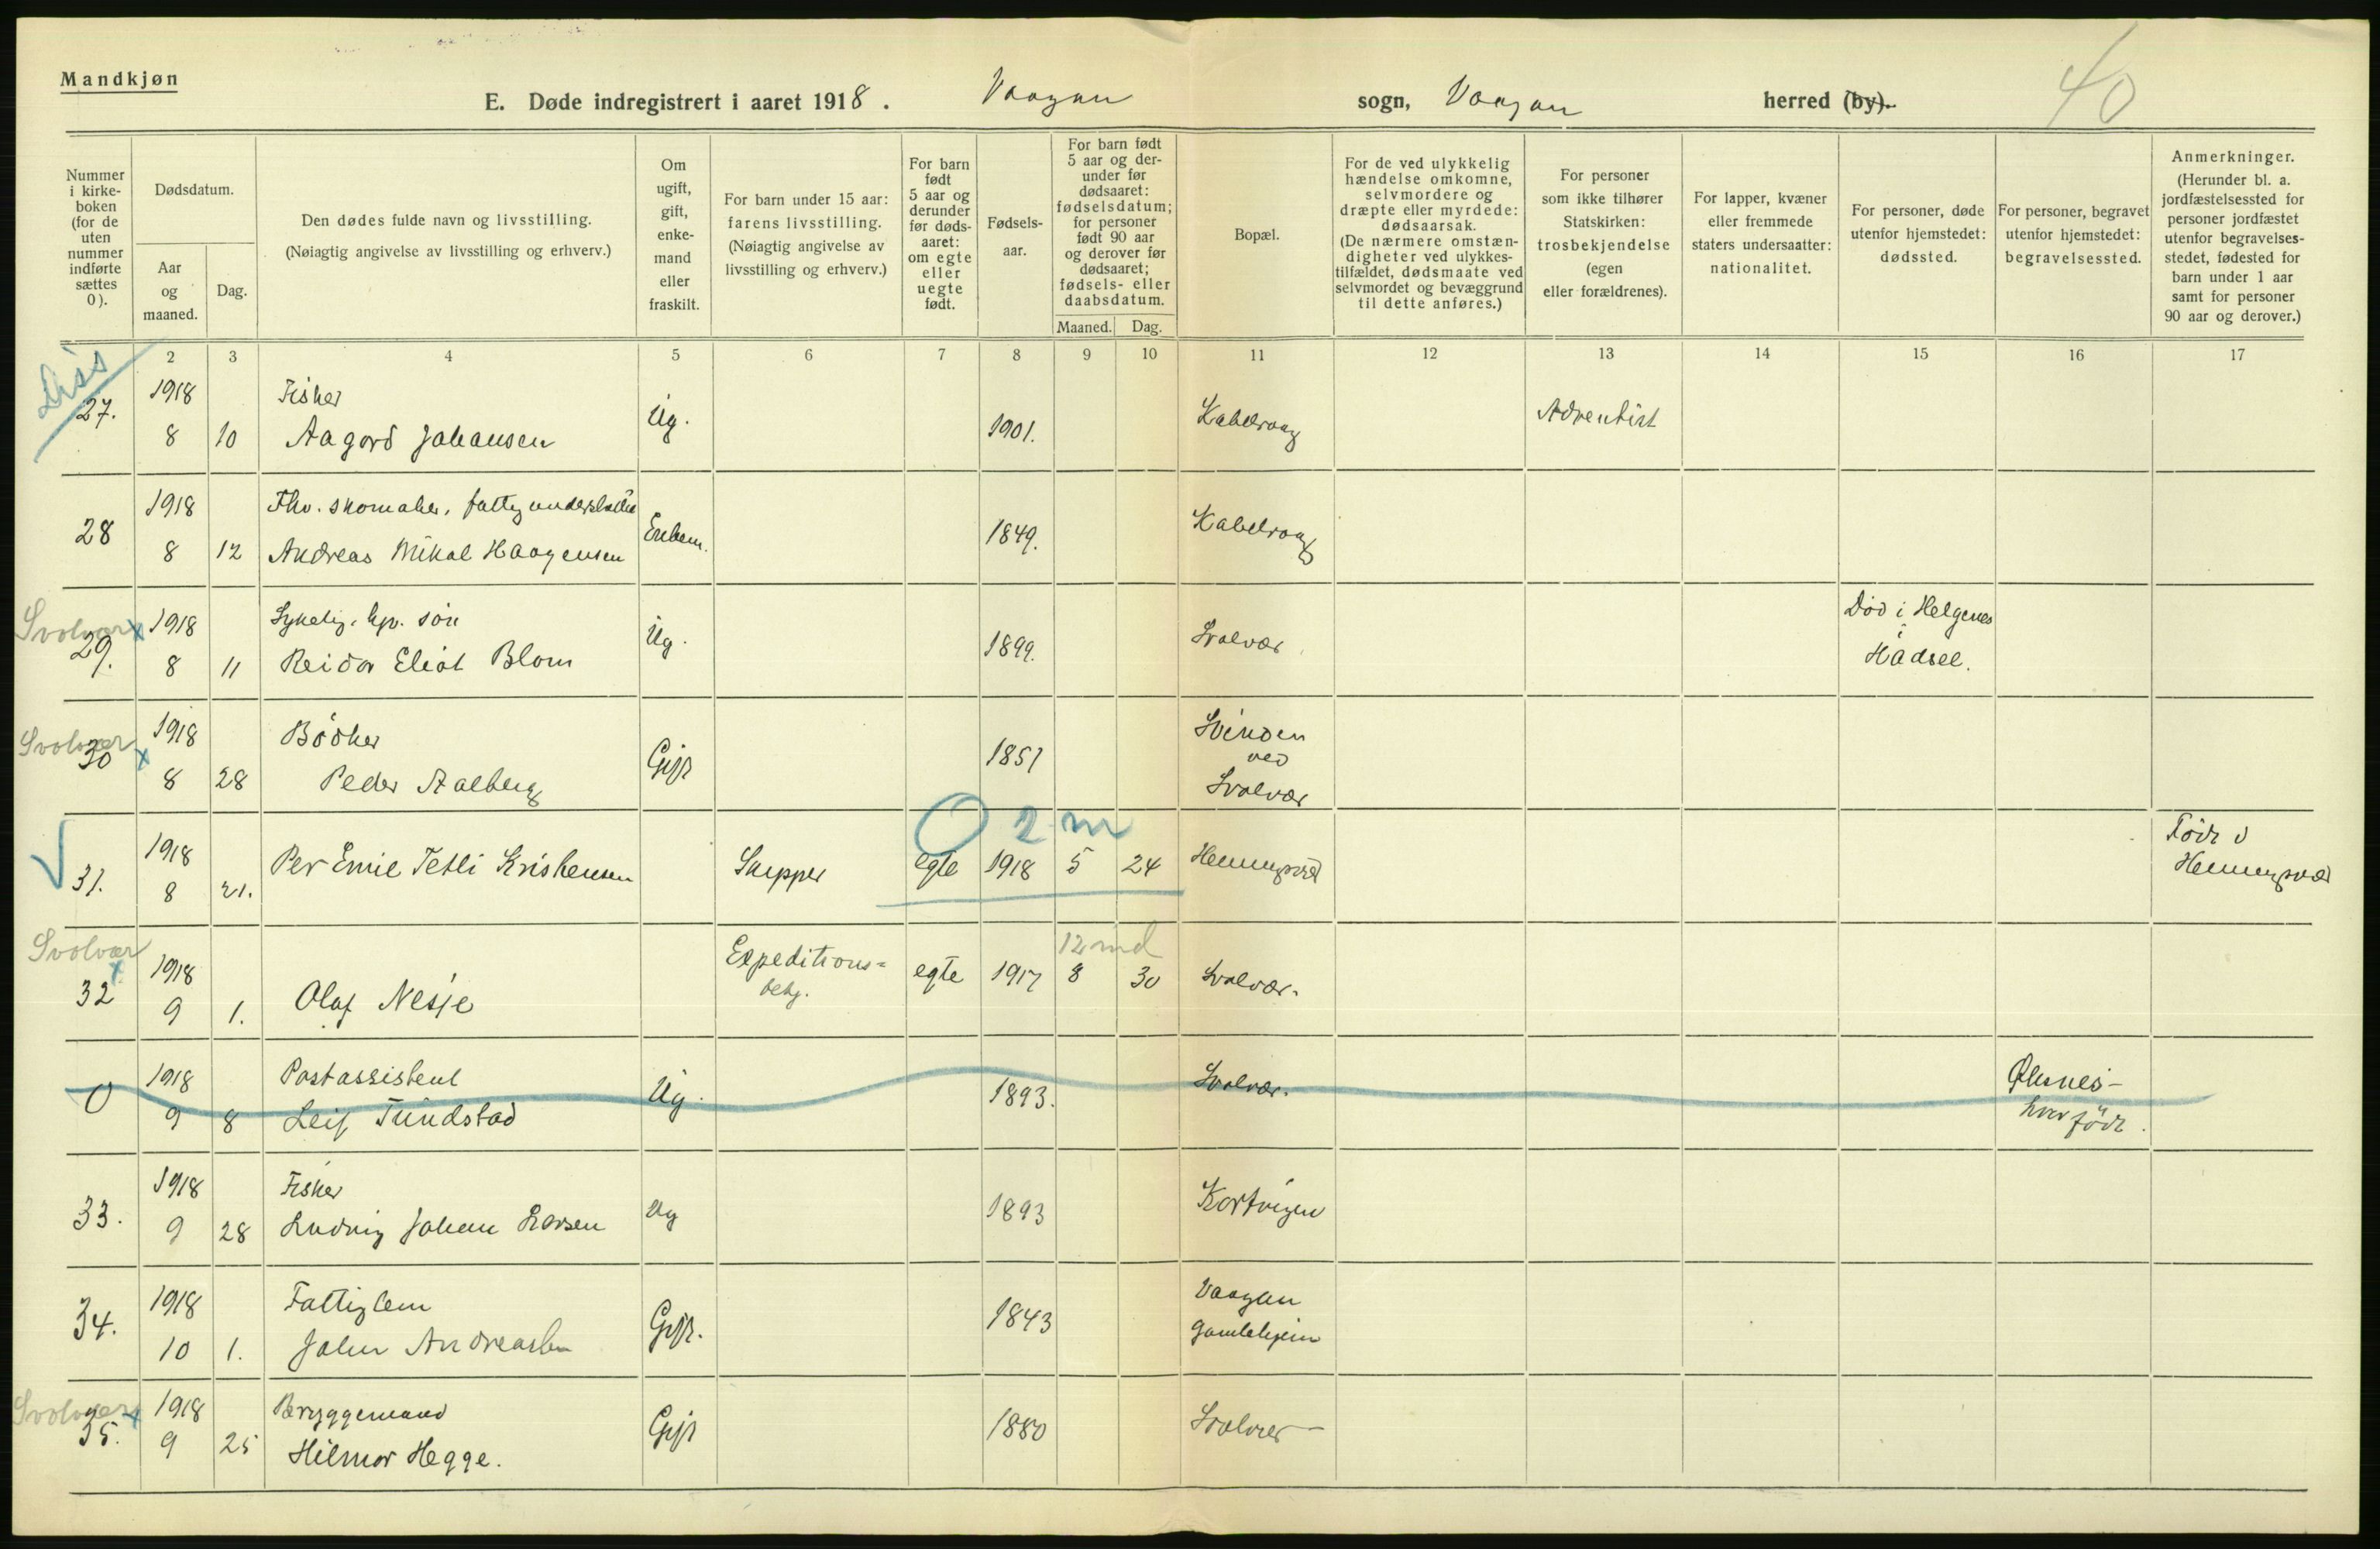 Mandkjøn
E. Døde indregistrert i aaret 1918. Vaagan sogn, Vaagan herred (by).
40
Nummer i kirke-boken (for de uten nummer indførte sættes 0).
Dødsdatum.
Aar og maaned.
Dag.
Den dødes fulde navn og livsstilling.
(Nøiagtig angivelse av livsstilling og erhverv.)
Om ugift, gift, enke-mand eller fraskilt.
For barn under 15 aar:
farens livsstilling.
(Nøiagtig angivelse av
livsstilling og erhverv.)
For barn født 5 aar og derunder før døds-aaret: om egte eller uegte født.
Fødsels-aar.
For barn født 5 aar og der-under før dødsaaret: fødselsdatum; for personer født 90 aar og derover før dødsaaret; fødsels- eller daabsdatum.
Maaned. Dag.
Bopæl.
For de ved ulykkelig hændelse omkomne, selvmordere og dræpte eller myrdede: dødsaarsak.
(De nærmere omstæn-digheter ved ulykkes-tilfældet, dødsmaate ved selvmordet og bevæggrund til dette anføres.)
For personer som ikke tilhører Statskirken: trosbekjendelse (egen eller forældrenes).
For lapper, kvæner eller fremmede staters undersaatter: nationalitet.
For personer, døde utenfor hjemstedet: dødssted.
For personer, begravet utenfor hjemstedet: begravelsessted.
Anmerkninger.
(Herunder bl. a. jordfæstelsessted for personer jordfæstet utenfor begravelses-stedet, fødested for barn under 1 aar samt for personer 90 aar og derover.)
2 3 4 5 6 7 8 9 10 11 12 13 14 15 16 17
Diss
27. 1918 Fisker Ug. 1901. Kabelvaag Adventist
8 10 Aagord Johansen
28 1918 Fhv. skomaker, Enkem. 1849. Kabelvaag
8 12 Andreas Mikal Haagensen
Svolvær x
29. 1918 søn Ug. 1899. Svolvær Död i Helgenes
8 11 Reidar Eliot Blom i Hadsel.
Svolvær x
30 1918 Bödker Gift 1851 Svinöen
ved
8 28 Peder Aalberg Svolvær
O 2 m
31. 1918 Per Emil Kristensen Skipper egte 1918 5 24 Henningsvær Födt i
8 21. Henningsvær
Svolvær x 12 md
32 1918 Expeditions= egte 1917 8 30 Svolvær.
betj.
9 1. Olaf Nesje
0 1918 Postassistent Ug. 1893. Svolvær. Öksnes-
9 8 Leif Tundstad hvor födt.
33. 1918 Fisker Ug 1893
9 28 Ludvig Johan Larsen
34. 1918 Fattiglem Gift. 1843 Vaagan
10 1. Johan Andreassen gamlehjem
Svolvær x
35. 1918 Bryggemand Gift 1880 Svolvær
9 25 Hilmar Hegge.